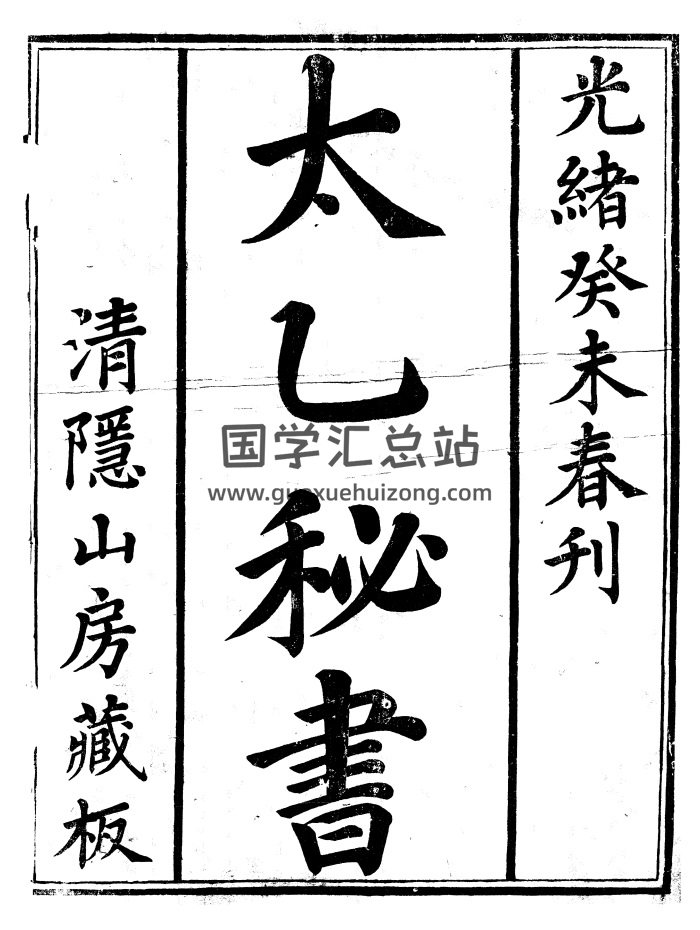 光緒癸未春刊
太乙秘書
清隱山房藏板
国学汇总站
www.guoxuehuizong.com